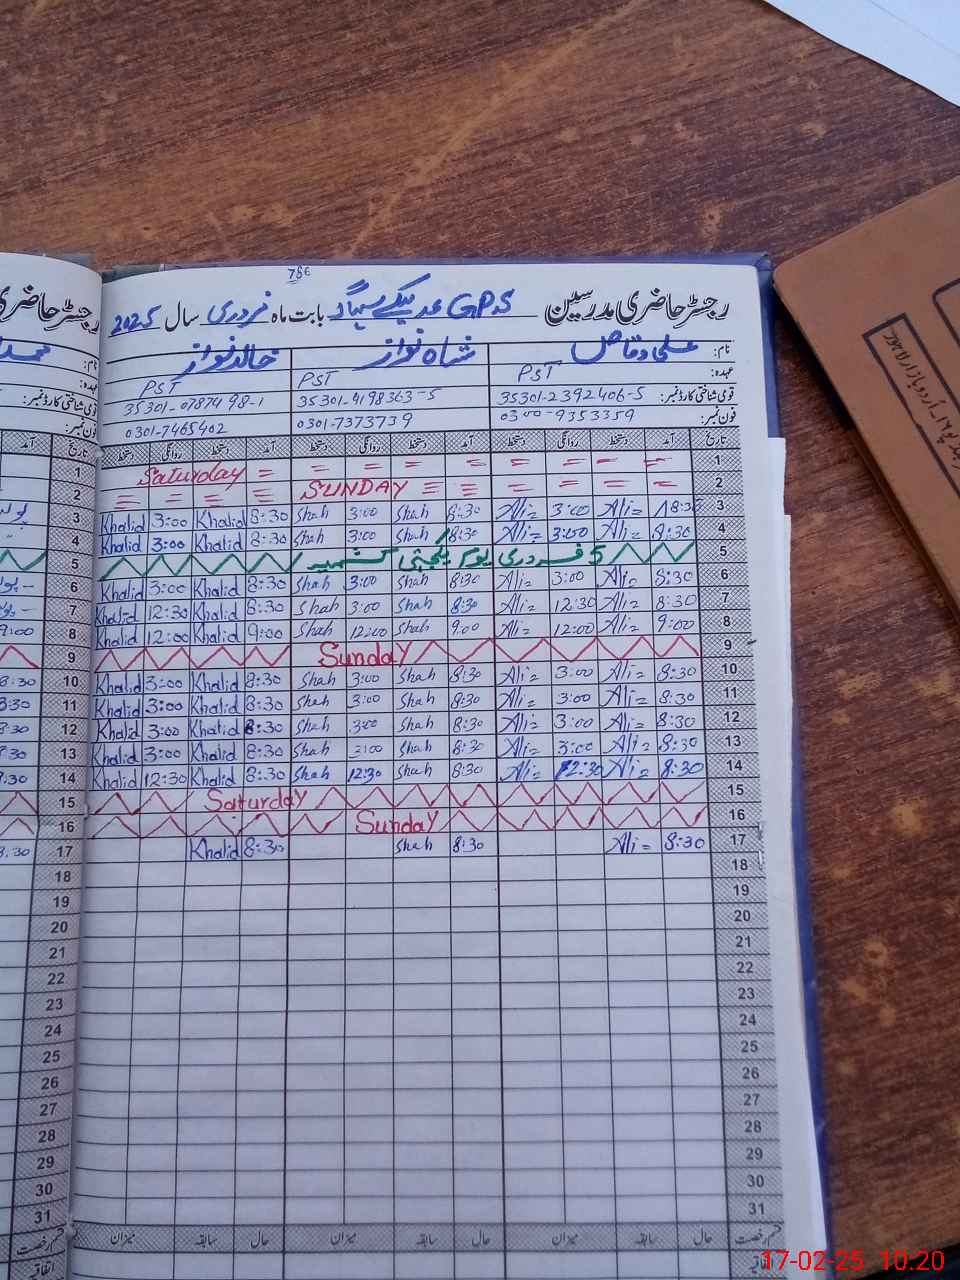 786
رجسٹر حاضری مدرسین GPS بابت ماہ فروری سال 2025
نام: علی وقاص شاہ نواز خالد نواز
عہدہ: PST PST PST
قومی شناختی کارڈ نمبر: 35301-2392406-5 35301-4198363-5 35301-0787498-1
فون نمبر: 0300-9353359 0301-7373739 0301-7465402
تاریخ آمد دستخط روانگی دستخط آمد دستخط روانگی دستخط آمد دستخط روانگی دستخط تاریخ
1 Saturday = = = = = = = = = 1
2 = = = = SUNDAY = = = = = = 2
3 Khalid 3:00 Khalid 8:30 Shah 3:00 Shah 8:30 Ali= 3:00 Ali= 8:30 3
4 Khalid 3:00 Khalid 8:30 Shah 3:00 Shah 8:30 Ali= 3:00 Ali= 8:30 4
5 5 فروری یوم یکجہتی کشمیر 5
6 Khalid 3:00 Khalid 8:30 Shah 3:00 Shah 8:30 Ali= 3:00 Ali= 8:30 6
7 Khalid 12:30 Khalid 8:30 Shah 3:00 Shah 8:30 Ali= 12:30 Ali= 8:30 7
9:00 8 Khalid 12:00 Khalid 9:00 Shah 12:00 Shah 9:00 Ali= 12:00 Ali= 9:00 8
9 Sunday 9
8:30 10 Khalid 3:00 Khalid 8:30 Shah 3:00 Shah 8:30 Ali= 3:00 Ali= 8:30 10
8:30 11 Khalid 3:00 Khalid 8:30 Shah 3:00 Shah 8:30 Ali= 3:00 Ali= 8:30 11
8:30 12 Khalid 3:00 Khalid 8:30 Shah 3:00 Shah 8:30 Ali= 3:00 Ali= 8:30 12
8:30 13 Khalid 3:00 Khalid 8:30 Shah 3:00 Shah 8:30 Ali= 3:00 Ali= 8:30 13
8:30 14 Khalid 12:30 Khalid 8:30 Shah 12:30 Shah 8:30 Ali= 12:30 Ali= 8:30 14
15 Saturday 15
16 Sunday 16
8:30 17 Khalid 8:30 Shah 8:30 Ali= 8:30 17
18 18
19 19
20 20
21 21
22 22
23 23
24 24
25 25
26 26
27 27
28 28
29 29
30 30
31 31
قسم رخصت حال سابقہ میزان حال سابقہ میزان حال سابقہ میزان قسم رخصت
اتفاقیہ
17-02-25 10:20